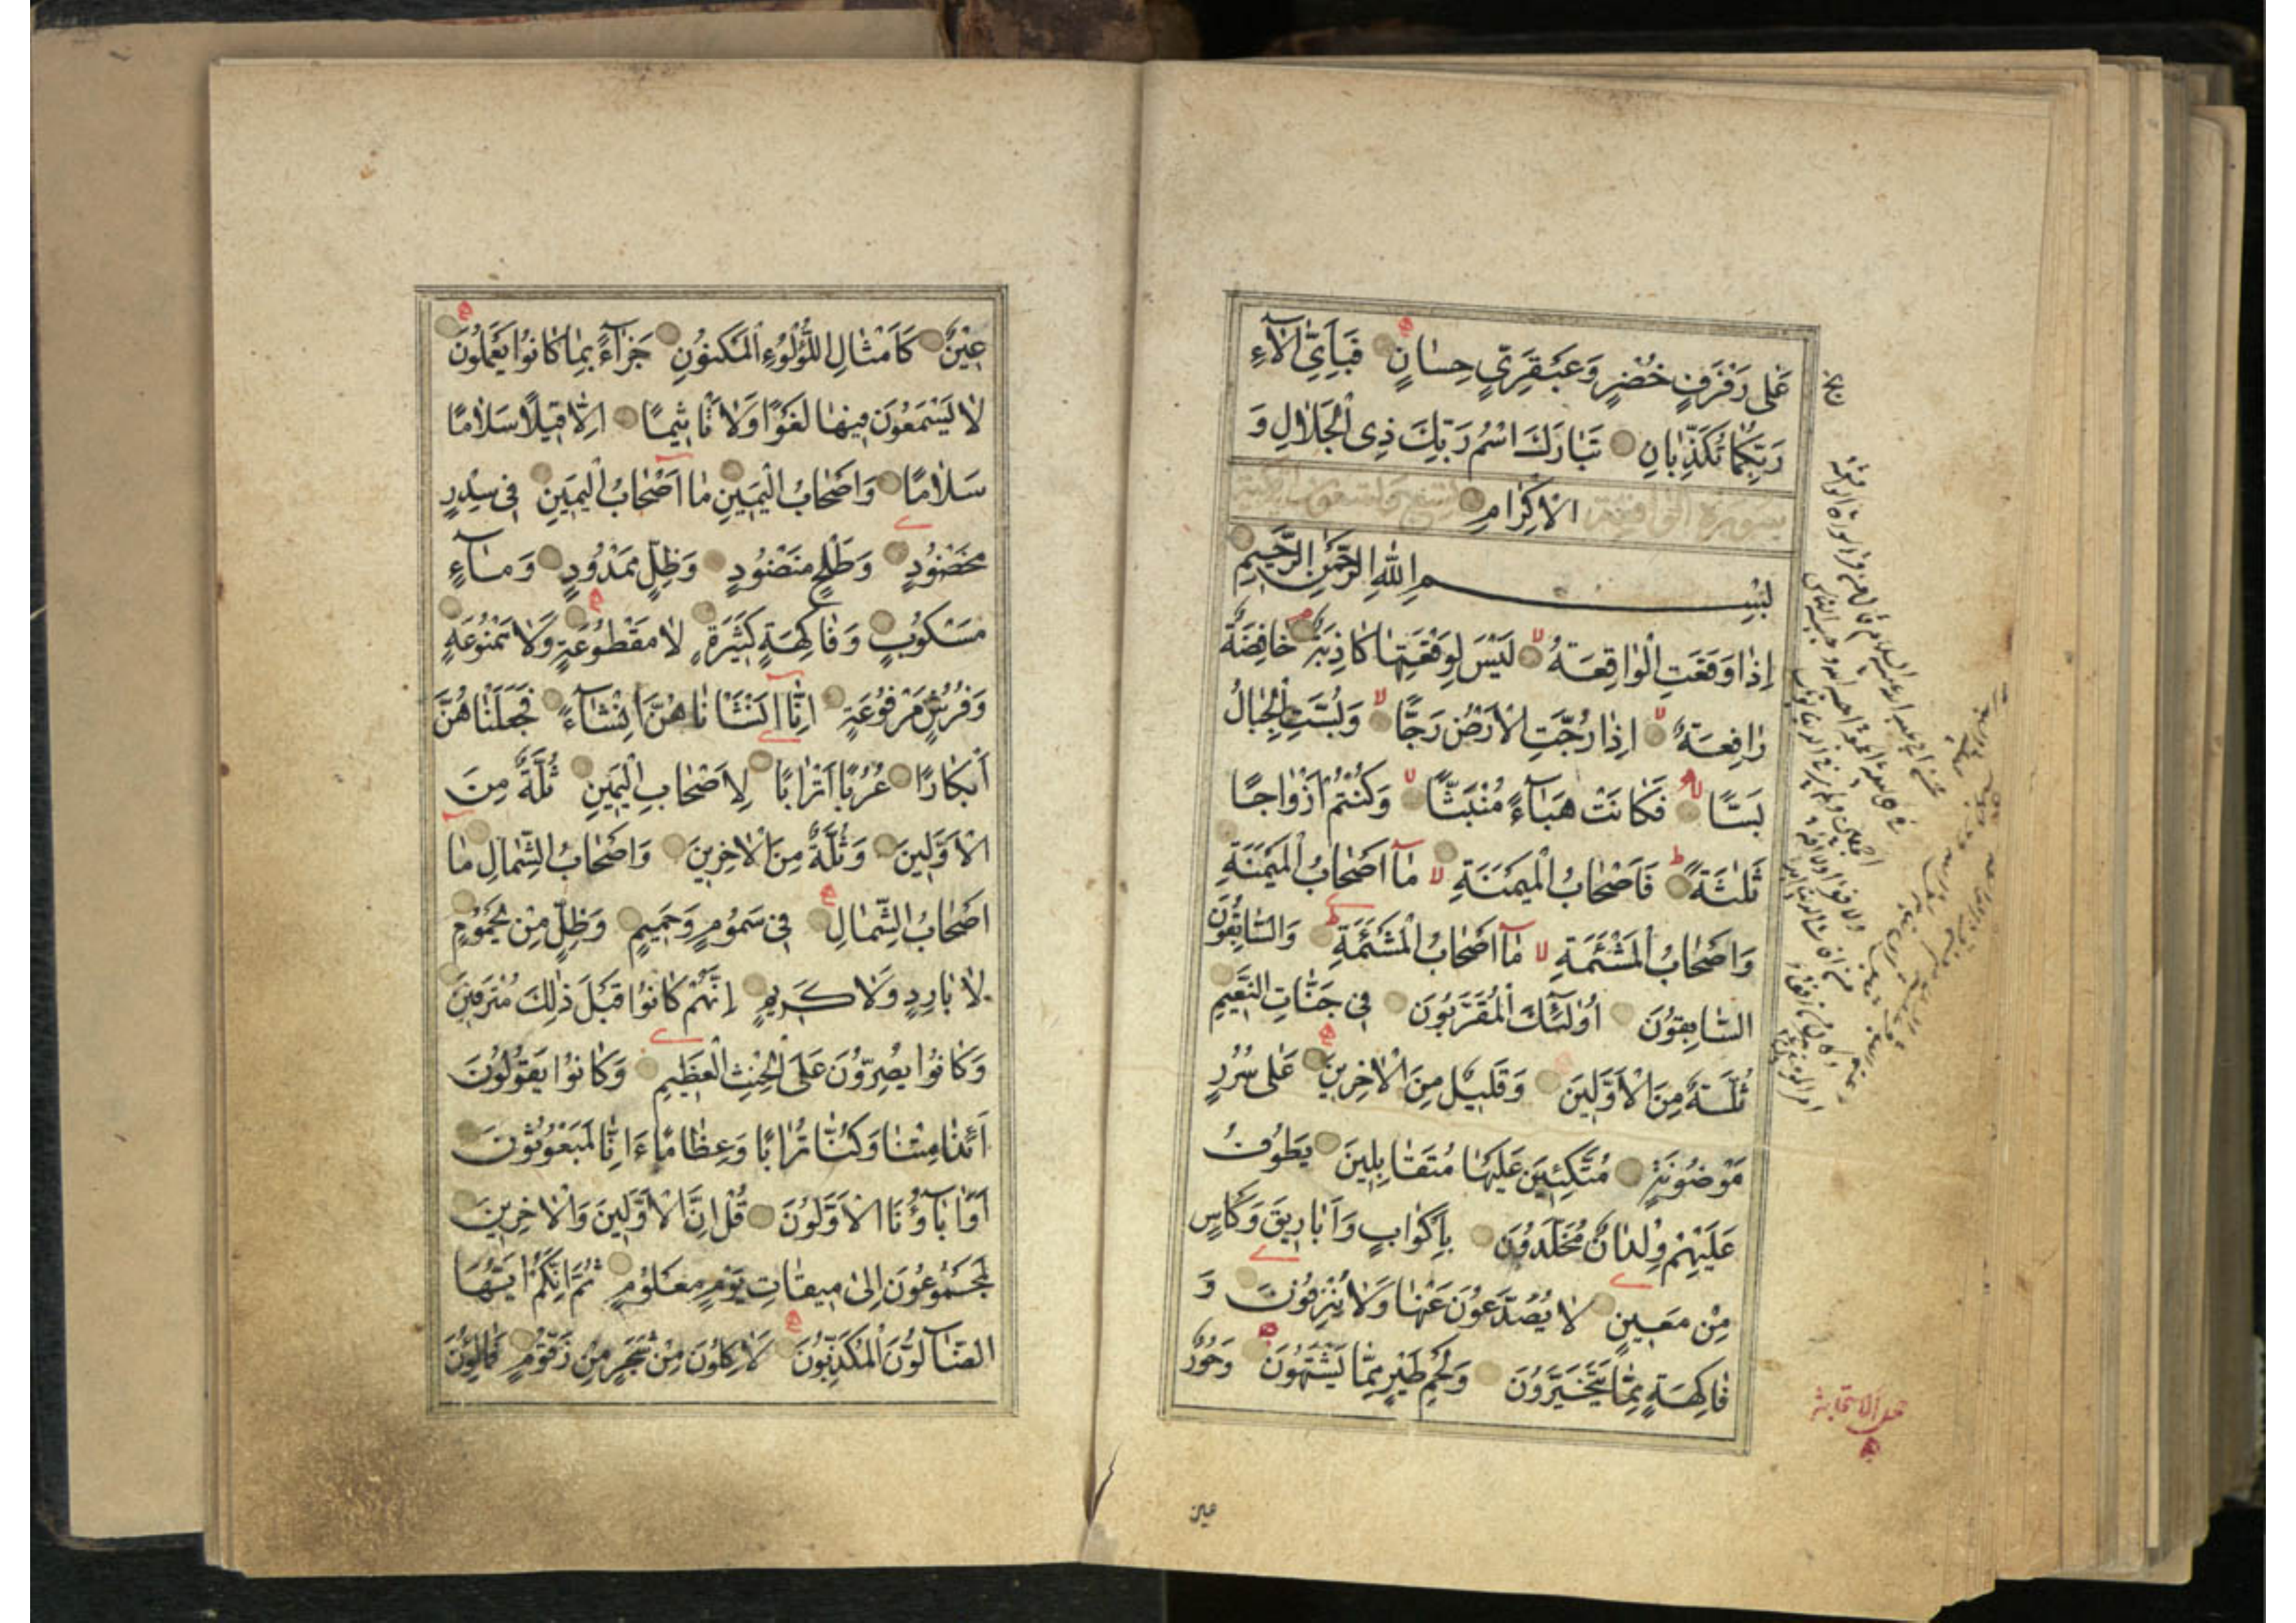 عَلٰى رَفْرَفٍ خُضْرٍ وَعَبْقَرِيٍّ حِسَانٍ فَبِاَيِّ اٰلَآءِ
رَبِّكُمَا تُكَذِّبَانِ تَبَارَكَ اسْمُ رَبِّكَ ذِى الْجَلَالِ وَ
سورة الواقعة الْاِكْرَامِ
بِسْمِ اللّٰهِ الرَّحْمٰنِ الرَّحِيمِ
اِذَا وَقَعَتِ الْوَاقِعَةُ لَيْسَ لِوَقْعَتِهَا كَاذِبَةٌ خَافِضَةٌ
رَافِعَةٌ اِذَا رُجَّتِ الْاَرْضُ رَجًّا وَبُسَّتِ الْجِبَالُ
بَسًّا فَكَانَتْ هَبَآءً مُنْبَثًّا وَكُنْتُمْ اَزْوَاجًا
ثَلٰثَةً فَاَصْحَابُ الْمَيْمَنَةِ مَآ اَصْحَابُ الْمَيْمَنَةِ
وَاَصْحَابُ الْمَشْئَمَةِ مَآ اَصْحَابُ الْمَشْئَمَةِ وَالسَّابِقُونَ
السَّابِقُونَ اُولٰٓئِكَ الْمُقَرَّبُونَ فِى جَنَّاتِ النَّعِيمِ
ثُلَّةٌ مِنَ الْاَوَّلِينَ وَقَلِيلٌ مِنَ الْاٰخِرِينَ عَلٰى سُرُرٍ
مَوْضُونَةٍ مُتَّكِئِينَ عَلَيْهَا مُتَقَابِلِينَ يَطُوفُ
عَلَيْهِمْ وِلْدَانٌ مُخَلَّدُونَ بِاَكْوَابٍ وَاَبَارِيقَ وَكَأْسٍ
مِنْ مَعِينٍ لَا يُصَدَّعُونَ عَنْهَا وَلَا يُنْزِفُونَ وَ
فَاكِهَةٍ مِمَّا يَتَخَيَّرُونَ وَلَحْمِ طَيْرٍ مِمَّا يَشْتَهُونَ وَحُورٌ
عين
عِينٌ كَاَمْثَالِ اللُّؤْلُؤِ الْمَكْنُونِ جَزَآءً بِمَا كَانُوا يَعْمَلُونَ
لَا يَسْمَعُونَ فِيهَا لَغْوًا وَلَا تَأْثِيمًا اِلَّا قِيلًا سَلَامًا
سَلَامًا وَاَصْحَابُ الْيَمِينِ مَا اَصْحَابُ الْيَمِينِ فِى سِدْرٍ
مَخْضُودٍ وَطَلْحٍ مَنْضُودٍ وَظِلٍّ مَمْدُودٍ وَمَآءٍ
مَسْكُوبٍ وَفَاكِهَةٍ كَثِيرَةٍ لَا مَقْطُوعَةٍ وَلَا مَمْنُوعَةٍ
وَفُرُشٍ مَرْفُوعَةٍ اِنَّا اَنْشَأْنَاهُنَّ اِنْشَآءً فَجَعَلْنَاهُنَّ
اَبْكَارًا عُرُبًا اَتْرَابًا لِاَصْحَابِ الْيَمِينِ ثُلَّةٌ مِنَ
الْاَوَّلِينَ وَثُلَّةٌ مِنَ الْاٰخِرِينَ وَاَصْحَابُ الشِّمَالِ مَا
اَصْحَابُ الشِّمَالِ فِى سَمُومٍ وَحَمِيمٍ وَظِلٍّ مِنْ يَحْمُومٍ
لَا بَارِدٍ وَلَا كَرِيمٍ اِنَّهُمْ كَانُوا قَبْلَ ذٰلِكَ مُتْرَفِينَ
وَكَانُوا يُصِرُّونَ عَلَى الْحِنْثِ الْعَظِيمِ وَكَانُوا يَقُولُونَ
اَئِذَا مِتْنَا وَكُنَّا تُرَابًا وَعِظَامًا ءَاِنَّا لَمَبْعُوثُونَ
اَوَاٰبَآؤُنَا الْاَوَّلُونَ قُلْ اِنَّ الْاَوَّلِينَ وَالْاٰخِرِينَ
لَمَجْمُوعُونَ اِلٰى مِيقَاتِ يَوْمٍ مَعْلُومٍ ثُمَّ اِنَّكُمْ اَيُّهَا
الضَّآلُّونَ الْمُكَذِّبُونَ لَاٰكِلُونَ مِنْ شَجَرٍ مِنْ زَقُّومٍ فَمَالِئُونَ